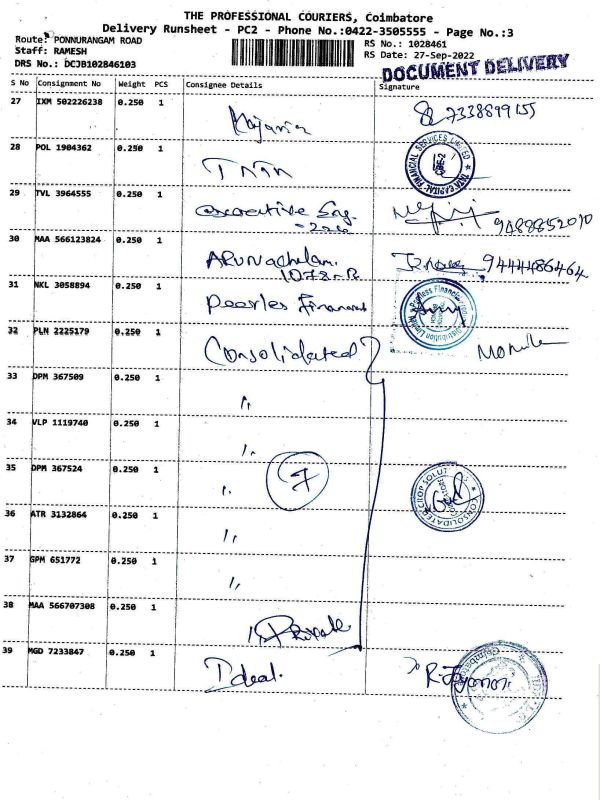 THE PROFESSIONAL COURIERS, Coimbatore
Delivery Runsheet - PC2 - Phone No.:0422-3505555 - Page No.:3
Route: PONNURANGAM ROAD
RS No.: 1028461
Staff: RAMESH
RS Date: 27-Sep-2022
DRS No.: DCJB102846103
DOCUMENT DELIVERY
S No Consignment No Weight PCS Consignee Details Signature
27 IXM 502226238 0.250 1 7338899155
28 POL 1904362 0.250 1
TATA CAPITAL FINANCIAL SERVICES LIMITED
29 TVL 3964555 0.250 1 executive Eng. 9488852010
30 MAA 566123824 0.250 1 ARUNachalam 9444486464
1078-R
31 NKL 3058894 0.250 1 Peerles Financial
32 PLN 2225179 0.250 1 Consolidated
33 DPM 367509 0.250 1 "
34 VLP 1119740 0.250 1 "
35 DPM 367524 0.250 1 " 7
CONSOLIDATED CROP SOLUT
36 ATR 3132864 0.250 1 "
37 GPM 651772 0.250 1 "
38 MAA 566707308 0.250 1 "
39 MGD 7233847 0.250 1 Ideal.